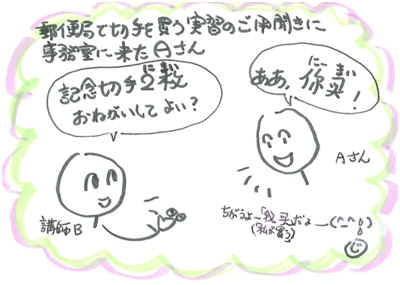 郵便局で切手を買う実習のご用聞きに
事務室に来たⒶさん
にまい
記念切手2枚
おねがいしてよい?
にー まい
ああ、你买!
Aさん
講師B
ちがうよ~「我买」だよ―(^_^;)
(私が買う)
じ